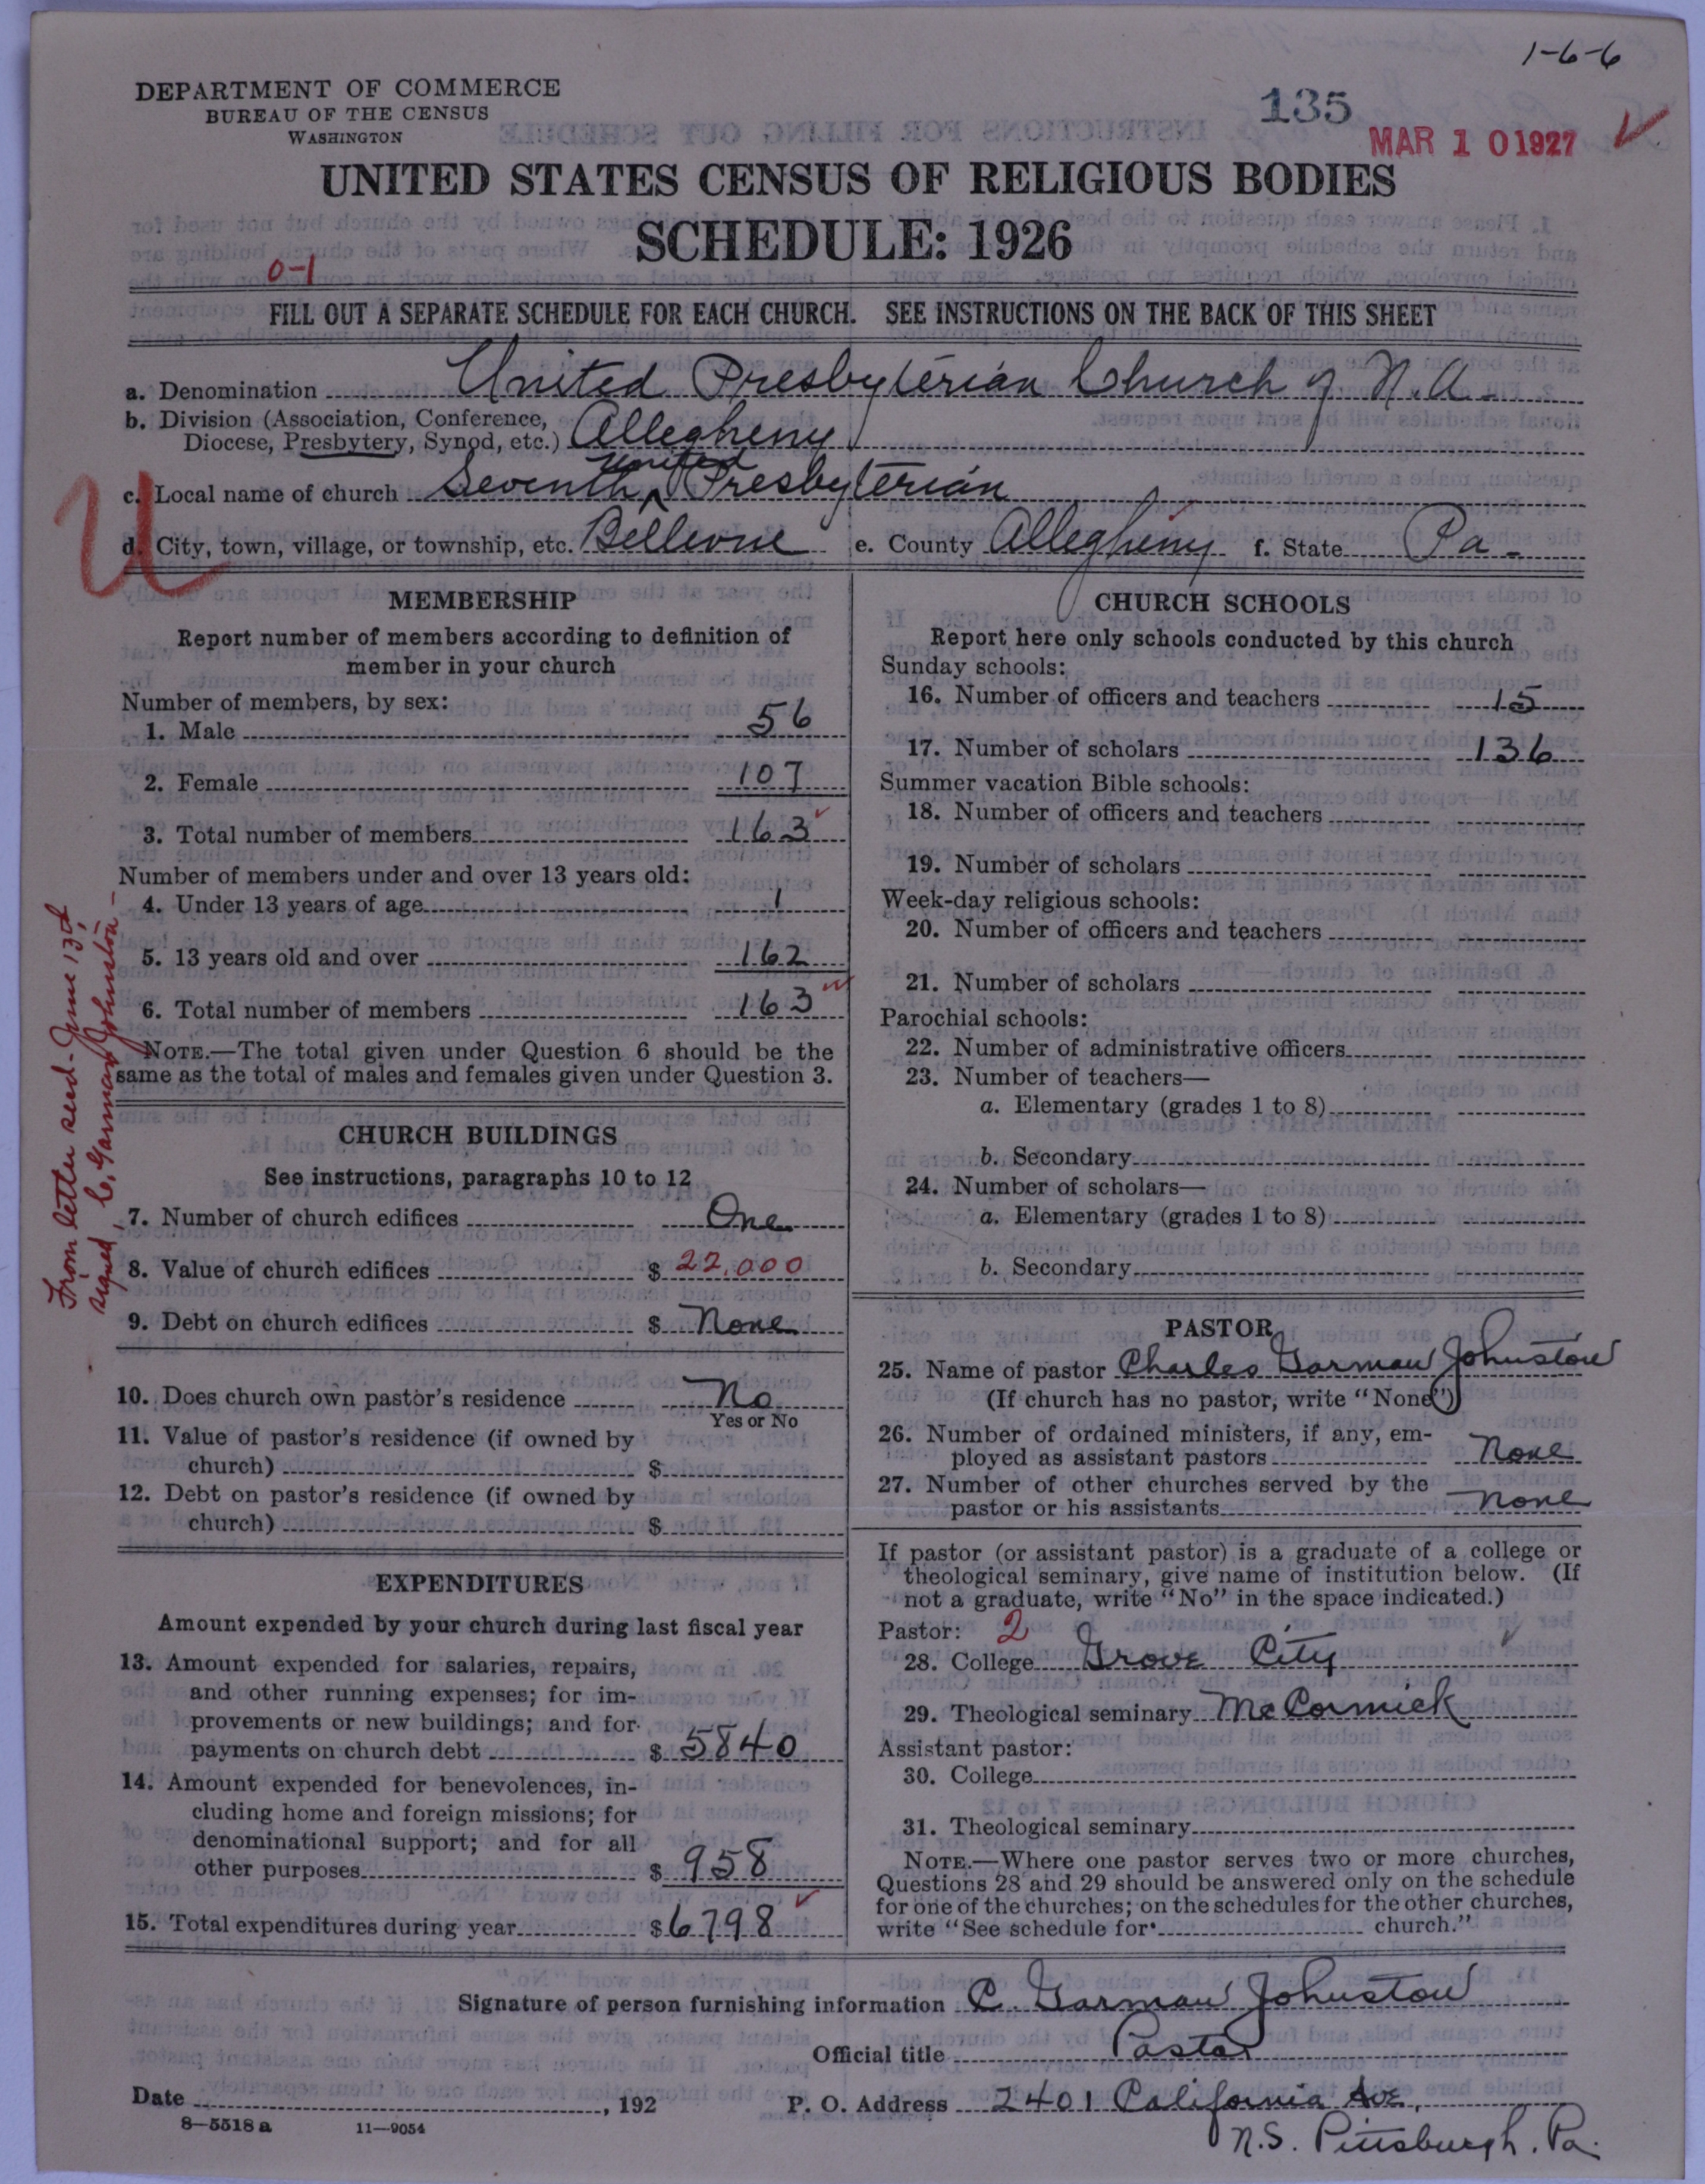 1-6-6
DEPARTMENT OF COMMERCE
BUREAU OF THE CENSUS
WASHINGTON
135
MAR 10 1927
UNITED STATES CENSUS OF RELIGIOUS BODIES
SCHEDULE: 1926
0-1
FILL OUT A SEPARATE SCHEDULE FOR EACH CHURCH. SEE INSTRUCTIONS ON THE BACK OF THIS SHEET
a. Denomination United Presbyterian Church of N.A.
b. Division (Association, Conference,
Diocese, Presbytery, Synod, etc.) Allegheny
c. Local name of church Seventh United Presbyterian
U
d. City, town, village, or township, etc. Bellevue e. County Allegheny f. State Pa.
MEMBERSHIP
Report number of members according to definition of
member in your church
Number of members, by sex:
1. Male 56
2. Female 107
3. Total number of members 163
Number of members under and over 13 years old:
4. Under 13 years of age 1
5. 13 years old and over 162
6. Total number of members 163
NOTE.—The total given under Question 6 should be the
same as the total of males and females given under Question 3.
From letter recd. June 13th
signed, C. Garman Johnston—
CHURCH BUILDINGS
See instructions, paragraphs 10 to 12
7. Number of church edifices One
8. Value of church edifices $ 22,000
9. Debt on church edifices $ None
10. Does church own pastor's residence No
Yes or No
11. Value of pastor's residence (if owned by
church) $
12. Debt on pastor's residence (if owned by
church) $
EXPENDITURES
Amount expended by your church during last fiscal year
13. Amount expended for salaries, repairs,
and other running expenses; for im-
provements or new buildings; and for
payments on church debt $ 5840
14. Amount expended for benevolences, in-
cluding home and foreign missions; for
denominational support; and for all
other purposes $ 958
15. Total expenditures during year $ 6798
CHURCH SCHOOLS
Report here only schools conducted by this church
Sunday schools:
16. Number of officers and teachers 15
17. Number of scholars 136
Summer vacation Bible schools:
18. Number of officers and teachers
19. Number of scholars
Week-day religious schools:
20. Number of officers and teachers
21. Number of scholars
Parochial schools:
22. Number of administrative officers
23. Number of teachers—
a. Elementary (grades 1 to 8)
b. Secondary
24. Number of scholars—
a. Elementary (grades 1 to 8)
b. Secondary
PASTOR
25. Name of pastor Charles Garman Johnston
(If church has no pastor, write "None")
26. Number of ordained ministers, if any, em-
ployed as assistant pastors None
27. Number of other churches served by the
pastor or his assistants None
If pastor (or assistant pastor) is a graduate of a college or
theological seminary, give name of institution below. (If
not a graduate, write "No" in the space indicated.)
Pastor: 2
28. College Grove City
29. Theological seminary McCormick
Assistant pastor:
30. College
31. Theological seminary
NOTE.—Where one pastor serves two or more churches,
Questions 28 and 29 should be answered only on the schedule
for one of the churches; on the schedules for the other churches,
write "See schedule for church."
Signature of person furnishing information C. Garman Johnston
Official title Pastor
Date , 192 P. O. Address 2401 California Ave,
8—5518 a 11—9054
N.S. Pittsburgh, Pa.